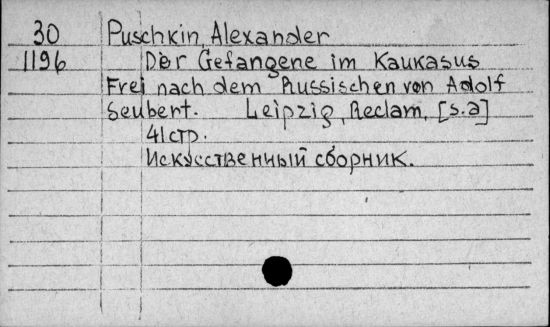 30 Puschkin Alexander
1196 Der Gefangene im Kaukasus
Frei nach dem Russischen von Adolf
Seubert. Leipzig, Reclam, [s.a]
41 стр.
Искусственный сборник.